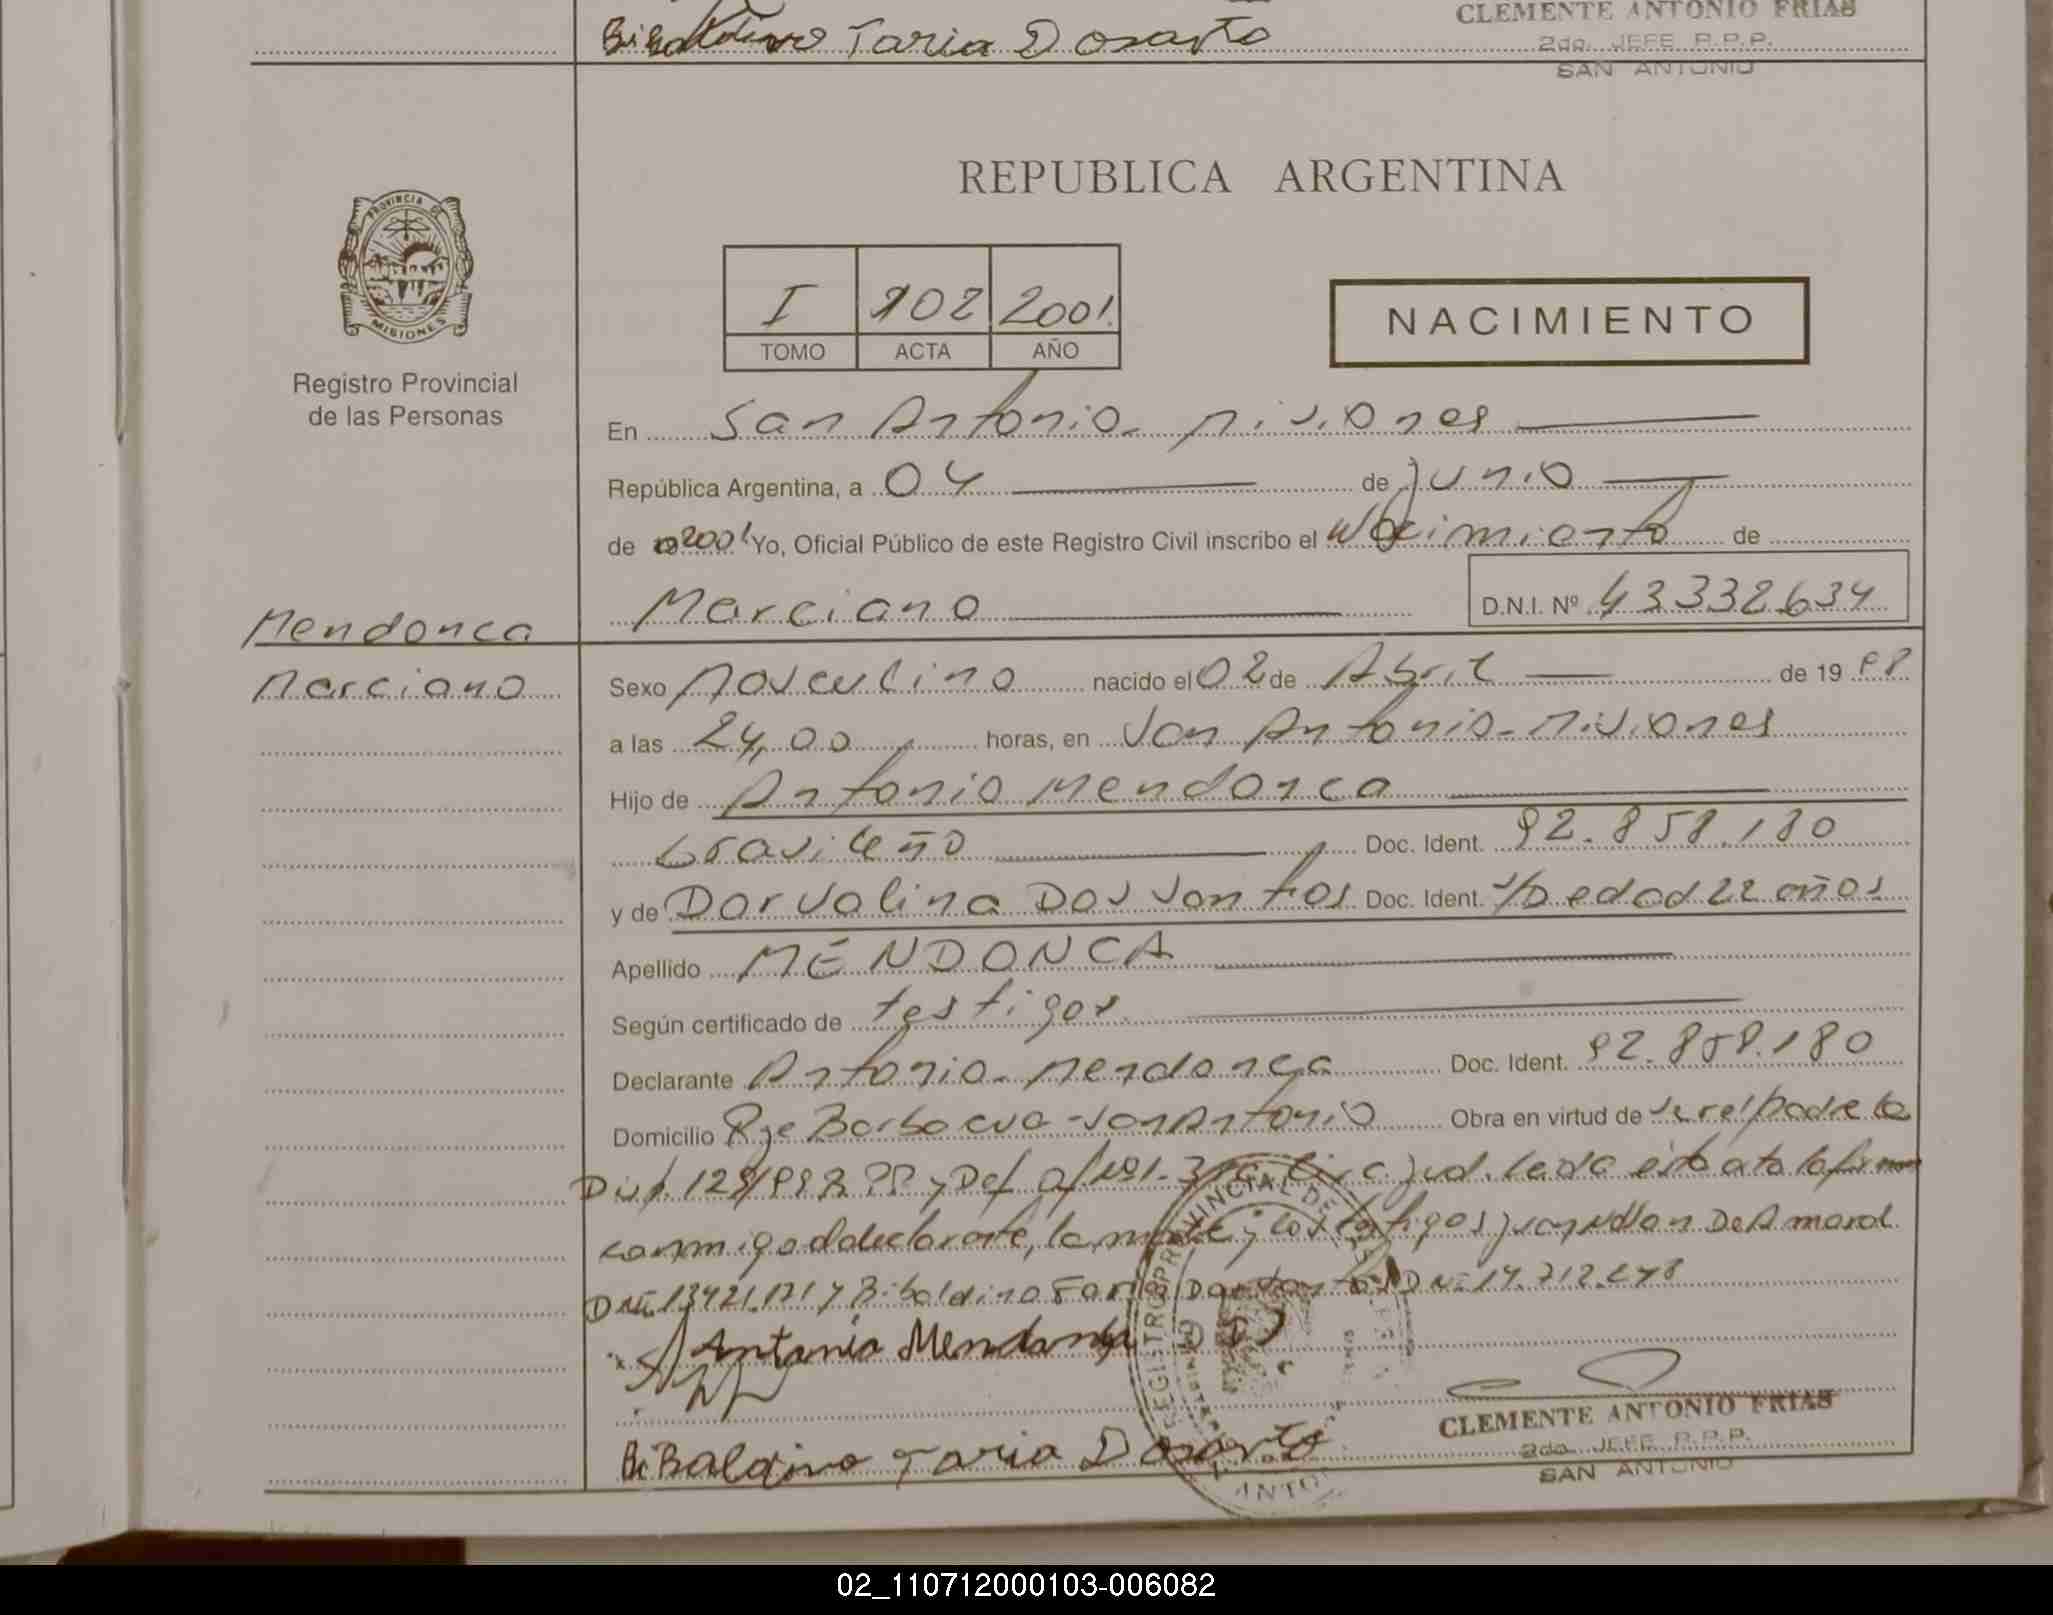 Bibaldino Faria Dosanto
CLEMENTE ANTONIO FRIAS
2do. JEFE R.P.P.
SAN ANTONIO
REPUBLICA ARGENTINA
PROVINCIA DE
MISIONES
Registro Provincial
de las Personas
I 102 2001
TOMO ACTA AÑO
NACIMIENTO
En San Antonio - Misiones
República Argentina, a 04 de Junio
de 2001 Yo, Oficial Público de este Registro Civil inscribo el Nacimiento de
Marciano D.N.I. Nº 43332634
Mendonca
Marciano
Sexo Masculino nacido el 02 de Abril de 19 98
a las 24,00 horas, en San Antonio - Misiones
Hijo de Antonio Mendonca
brasileño Doc. Ident. 92.858.180
y de Dorvalina Dos Santos Doc. Ident. S/D edad 22 años
Apellido MENDONCA
Según certificado de testigos
Declarante Antonio - Mendonca Doc. Ident. 92.858.180
Domicilio Pje Barbacua - San Antonio Obra en virtud de
Disp. y Def. leida esta acta la firman
conmigo el declarante, la madre y los testigos Juan De Amaral
DNI. y Bibaldino Faria Dos Santos DNI. 14.712.278
Antonio Mendonça
BiBaldino Faria Dosanto
REGISTRO PROVINCIAL DE
CLEMENTE ANTONIO FRIAS
2do. JEFE R.P.P.
SAN ANTONIO
02_110712000103-006082